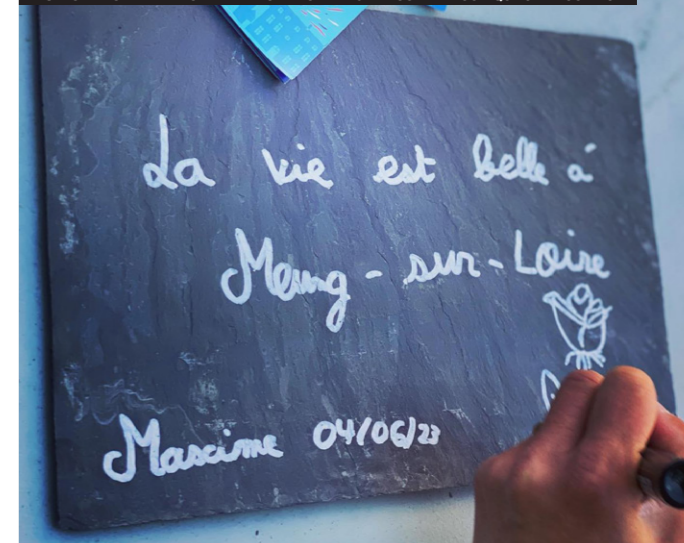 La vie est belle à
Meung-sur-Loire
Maxime 04/06/23